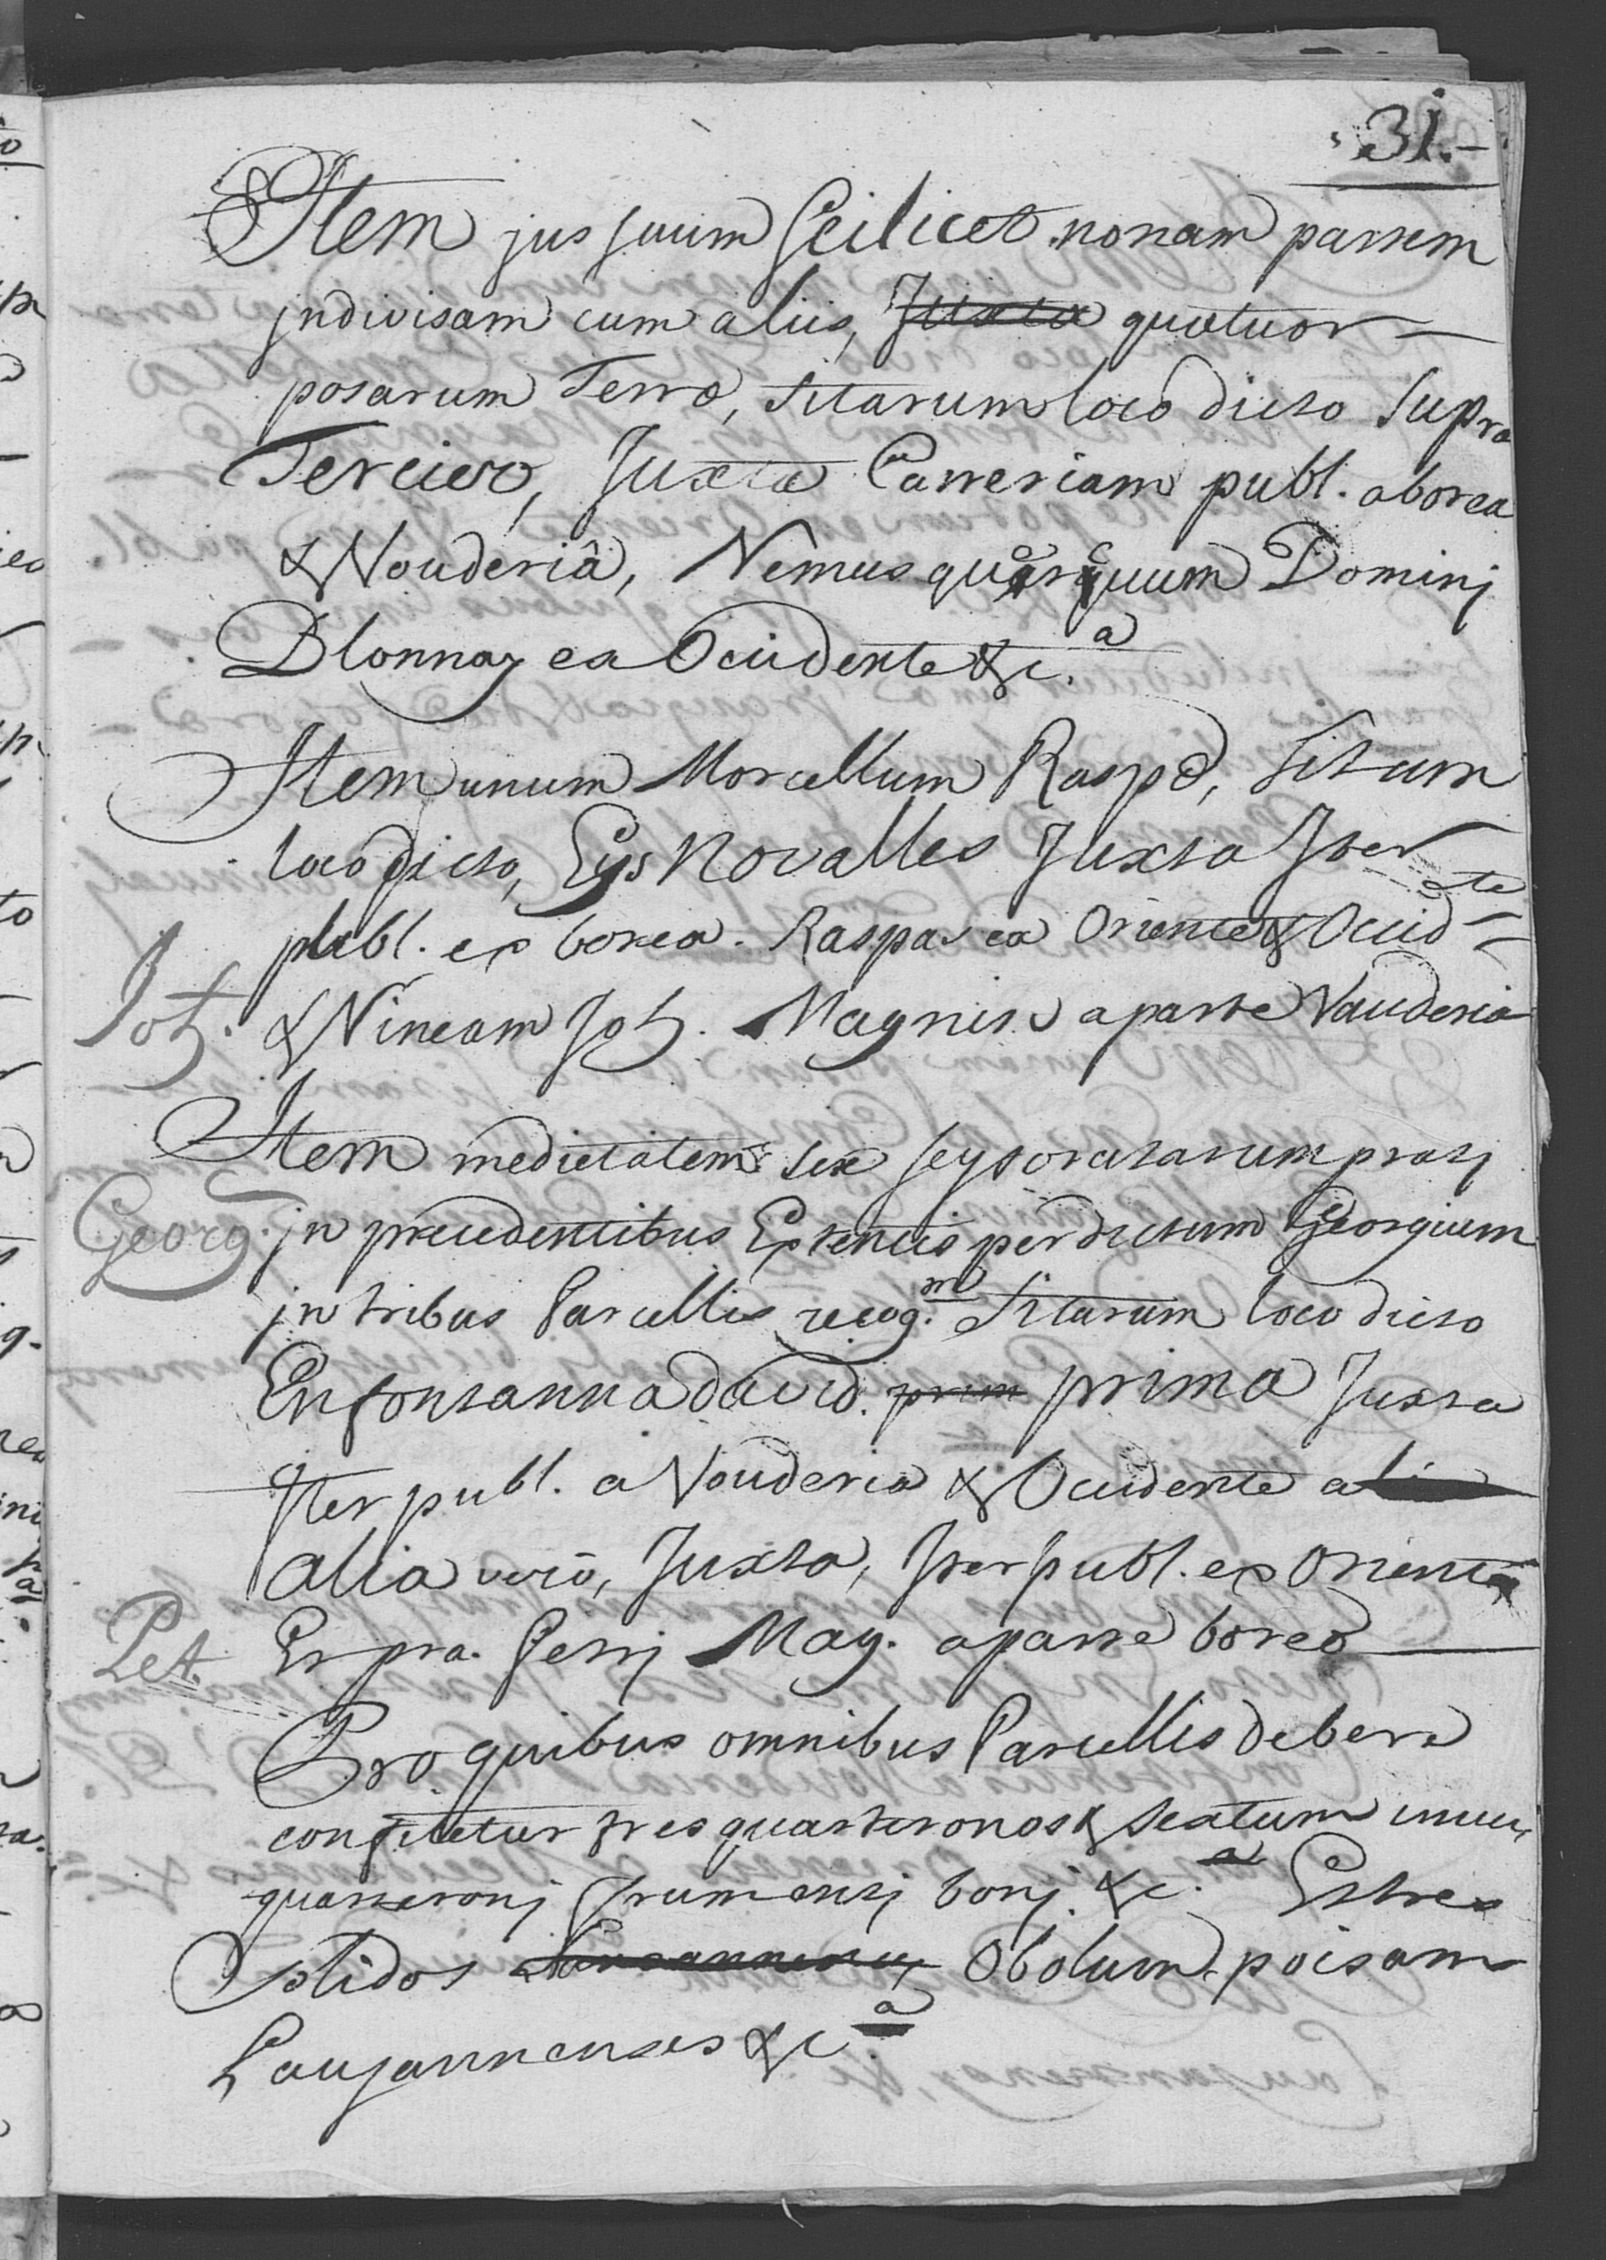 31.
Item jus suum scilicet nonam partem
jndivisam cum aliis, Juxta quatuor
posarum Terræ, sitarum loco dicto supra
Tercier, Juxta Carreriam publ. a borea
& Vouderiâ, Nemus quercuum Dominj
Blonnay ex Occidente &c.a
Item unum Morcellum Raspæ, situm
loco dicto, Eys Novalles Juxta Jter
publ. ex borea. Raspas ex Oriente & Occid.te
Joh. & Vineam Joh. Magnin a parte Vauderia
Item medietatem sex seysoratarum pratj
Georg. jn precedentibus Extentis per dictum Georgium
jn tribus Parcellis recog.m sitarum loco dicto
En fontanna david. prim prima Juxta
Jter publ. a Vouderia & Occidente
alia verò, Juxta, Jter publ. ex Oriente
Pet. Et pra. Petrj Mag. a parte boreæ
Pro quibus omnibus Parcellis debere
confitetur tres quarteronos & sextum unius
quarteronj frumentj bonj &c.a Et tres
Solidos Obolum poisam
Lausannenses &c.a